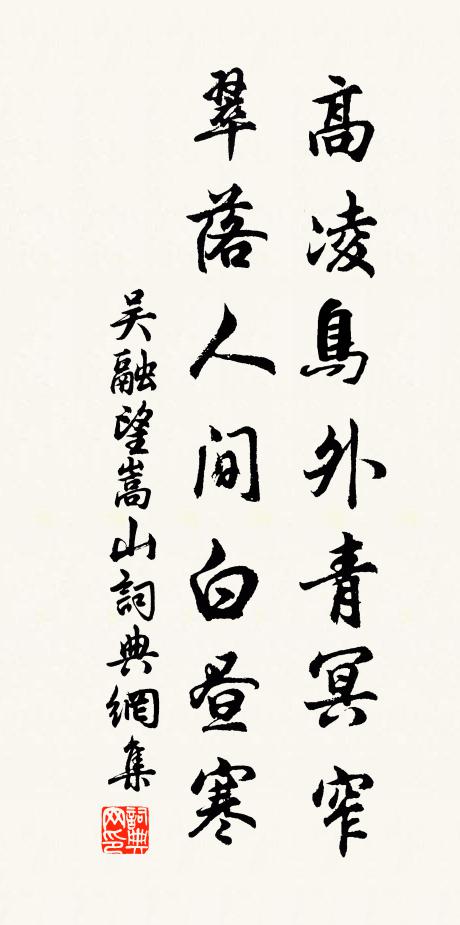 高凌鳥外青冥窄
翠落人間白晝寒
吳融望嵩山詞典網集
詞典网印